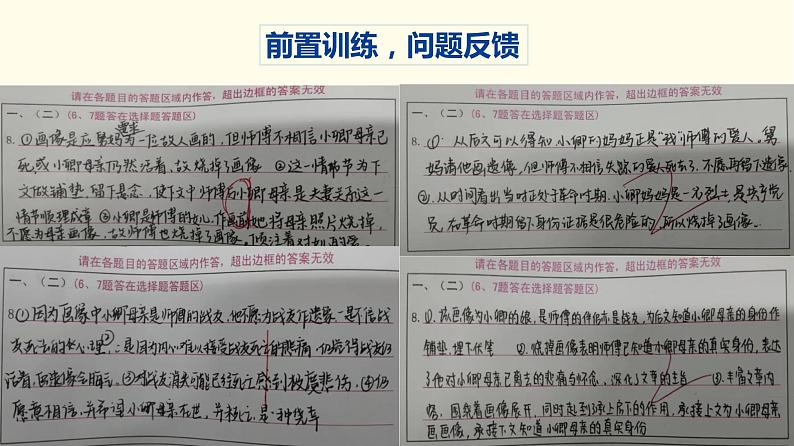 前置训练，问题反馈
请在各题目的答题区域内作答，超出边框的答案无效
一、（二）(6、7题答在选择题答题区)
8. ①画像是应舅妈为一位故人画的，但师傅不相信小卿母亲已
死，或小卿母亲仍然活着，故烧掉了画像 ②这一情节节为下
文做铺垫，留下悬念，使下文中师傅与小卿母亲是夫妻关系这一
情节顺理成章 ③小卿是师傅的女儿，作画时她将母亲照片烧掉，
不愿为母亲画像，故师傅也烧掉了画像。
请在各题目的答题区域内作答，超出边框的答案无效
一、（二）(6、7题答在选择题答题区)
8. ①. 从后文可以得知，小卿的妈妈正是“我”师傅的爱人。舅
妈请他画遗像，但师傅不相信失踪的爱人死去了，不愿再留个遗像。
②. 从时间看出当时正处于革命时期，小卿妈妈是一元烈士，是共产党
员，在革命时期留下身份证据是很危险的，所以烧掉了画像。
请在各题目的答题区域内作答，超出边框的答案无效
一、（二）(6、7题答在选择题答题区)
8①因为画像中小卿母亲是师傅的战友，他不愿为战友作遗像一是不信战
友死亡的心理，②二是因为内心难以接受战友死亡的悲痛，仍觉得战友仍
活着，画遗像会暗示，③对战友消失可能已经死亡感到极度悲伤，④仍
愿意相信，并希望小卿母亲在世，并抵亡是一种侥幸
请在各题目的答题区域内作答，超出边框的答案无效
一、（二）(6、7题答在选择题答题区)
8. ①. 该画像为小卿的娘，是师傅的伴侣亦是战友，为后文知道小卿母亲的身份作
铺垫，埋下伏笔 ②. 烧掉画像表明师傅已知道小卿母亲的真实身份，表达
了他对小卿母亲已离去的悲痛与怀念，深化了文章的主旨 ③. 丰富文章内
容，围绕着画像展开，同时起到承上启下的作用，承接上文为小卿母亲
画像，承接下文知道小卿母亲的真实身份